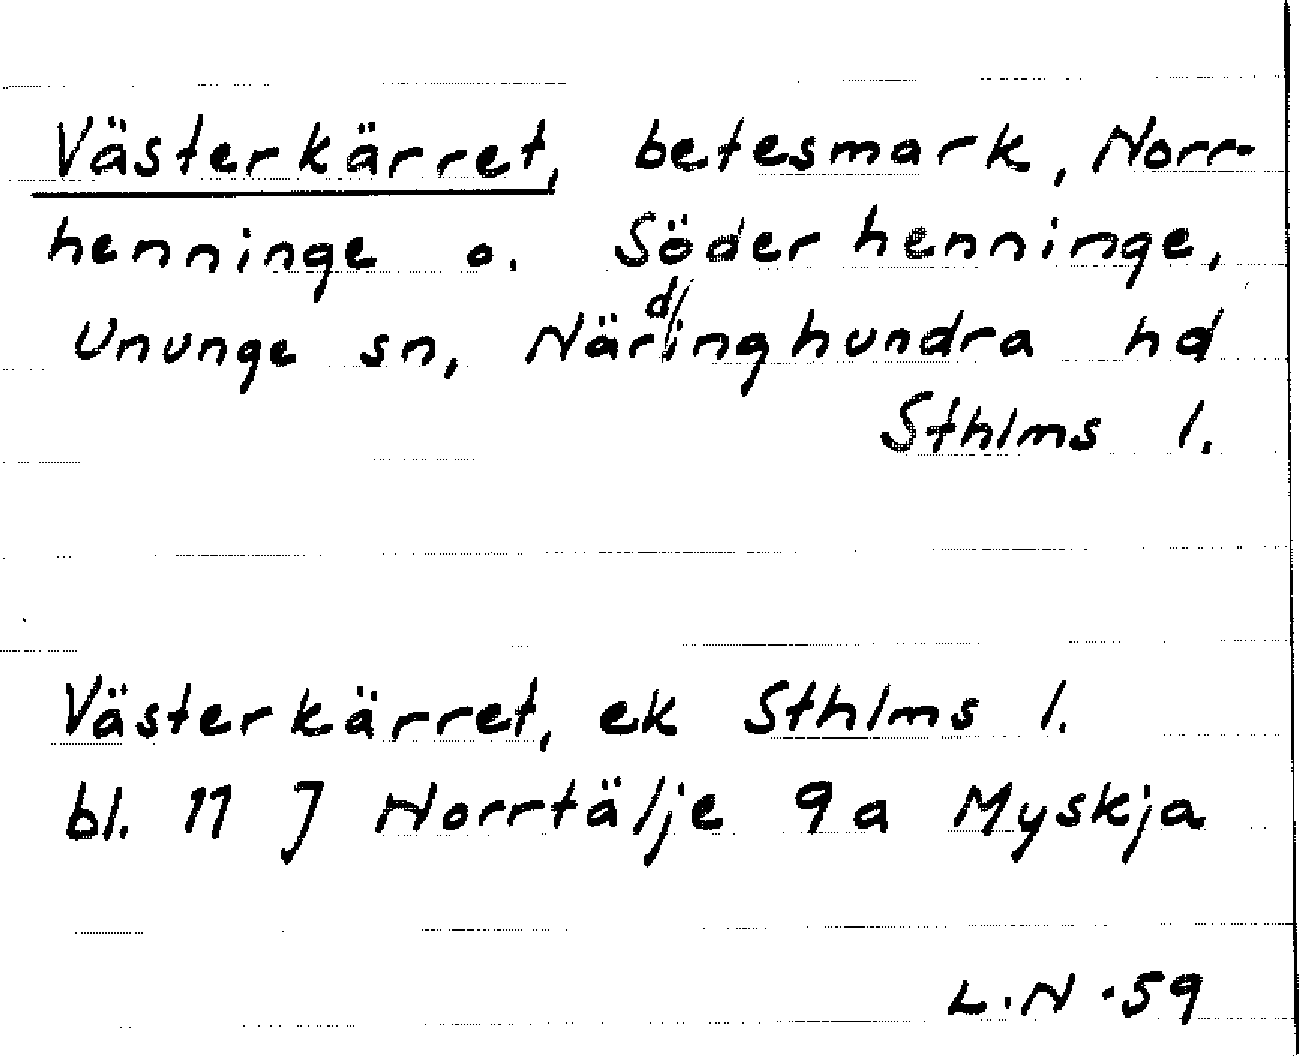 Västerkärret, betesmark, Norr-
henninge o. Söderhenninge,
Ununge sn, Närdinghundra hd
Sthlms l.
Västerkärret, ek Sthlms l.
bl. 11 J Norrtälje 9a Myskja
L.N.59